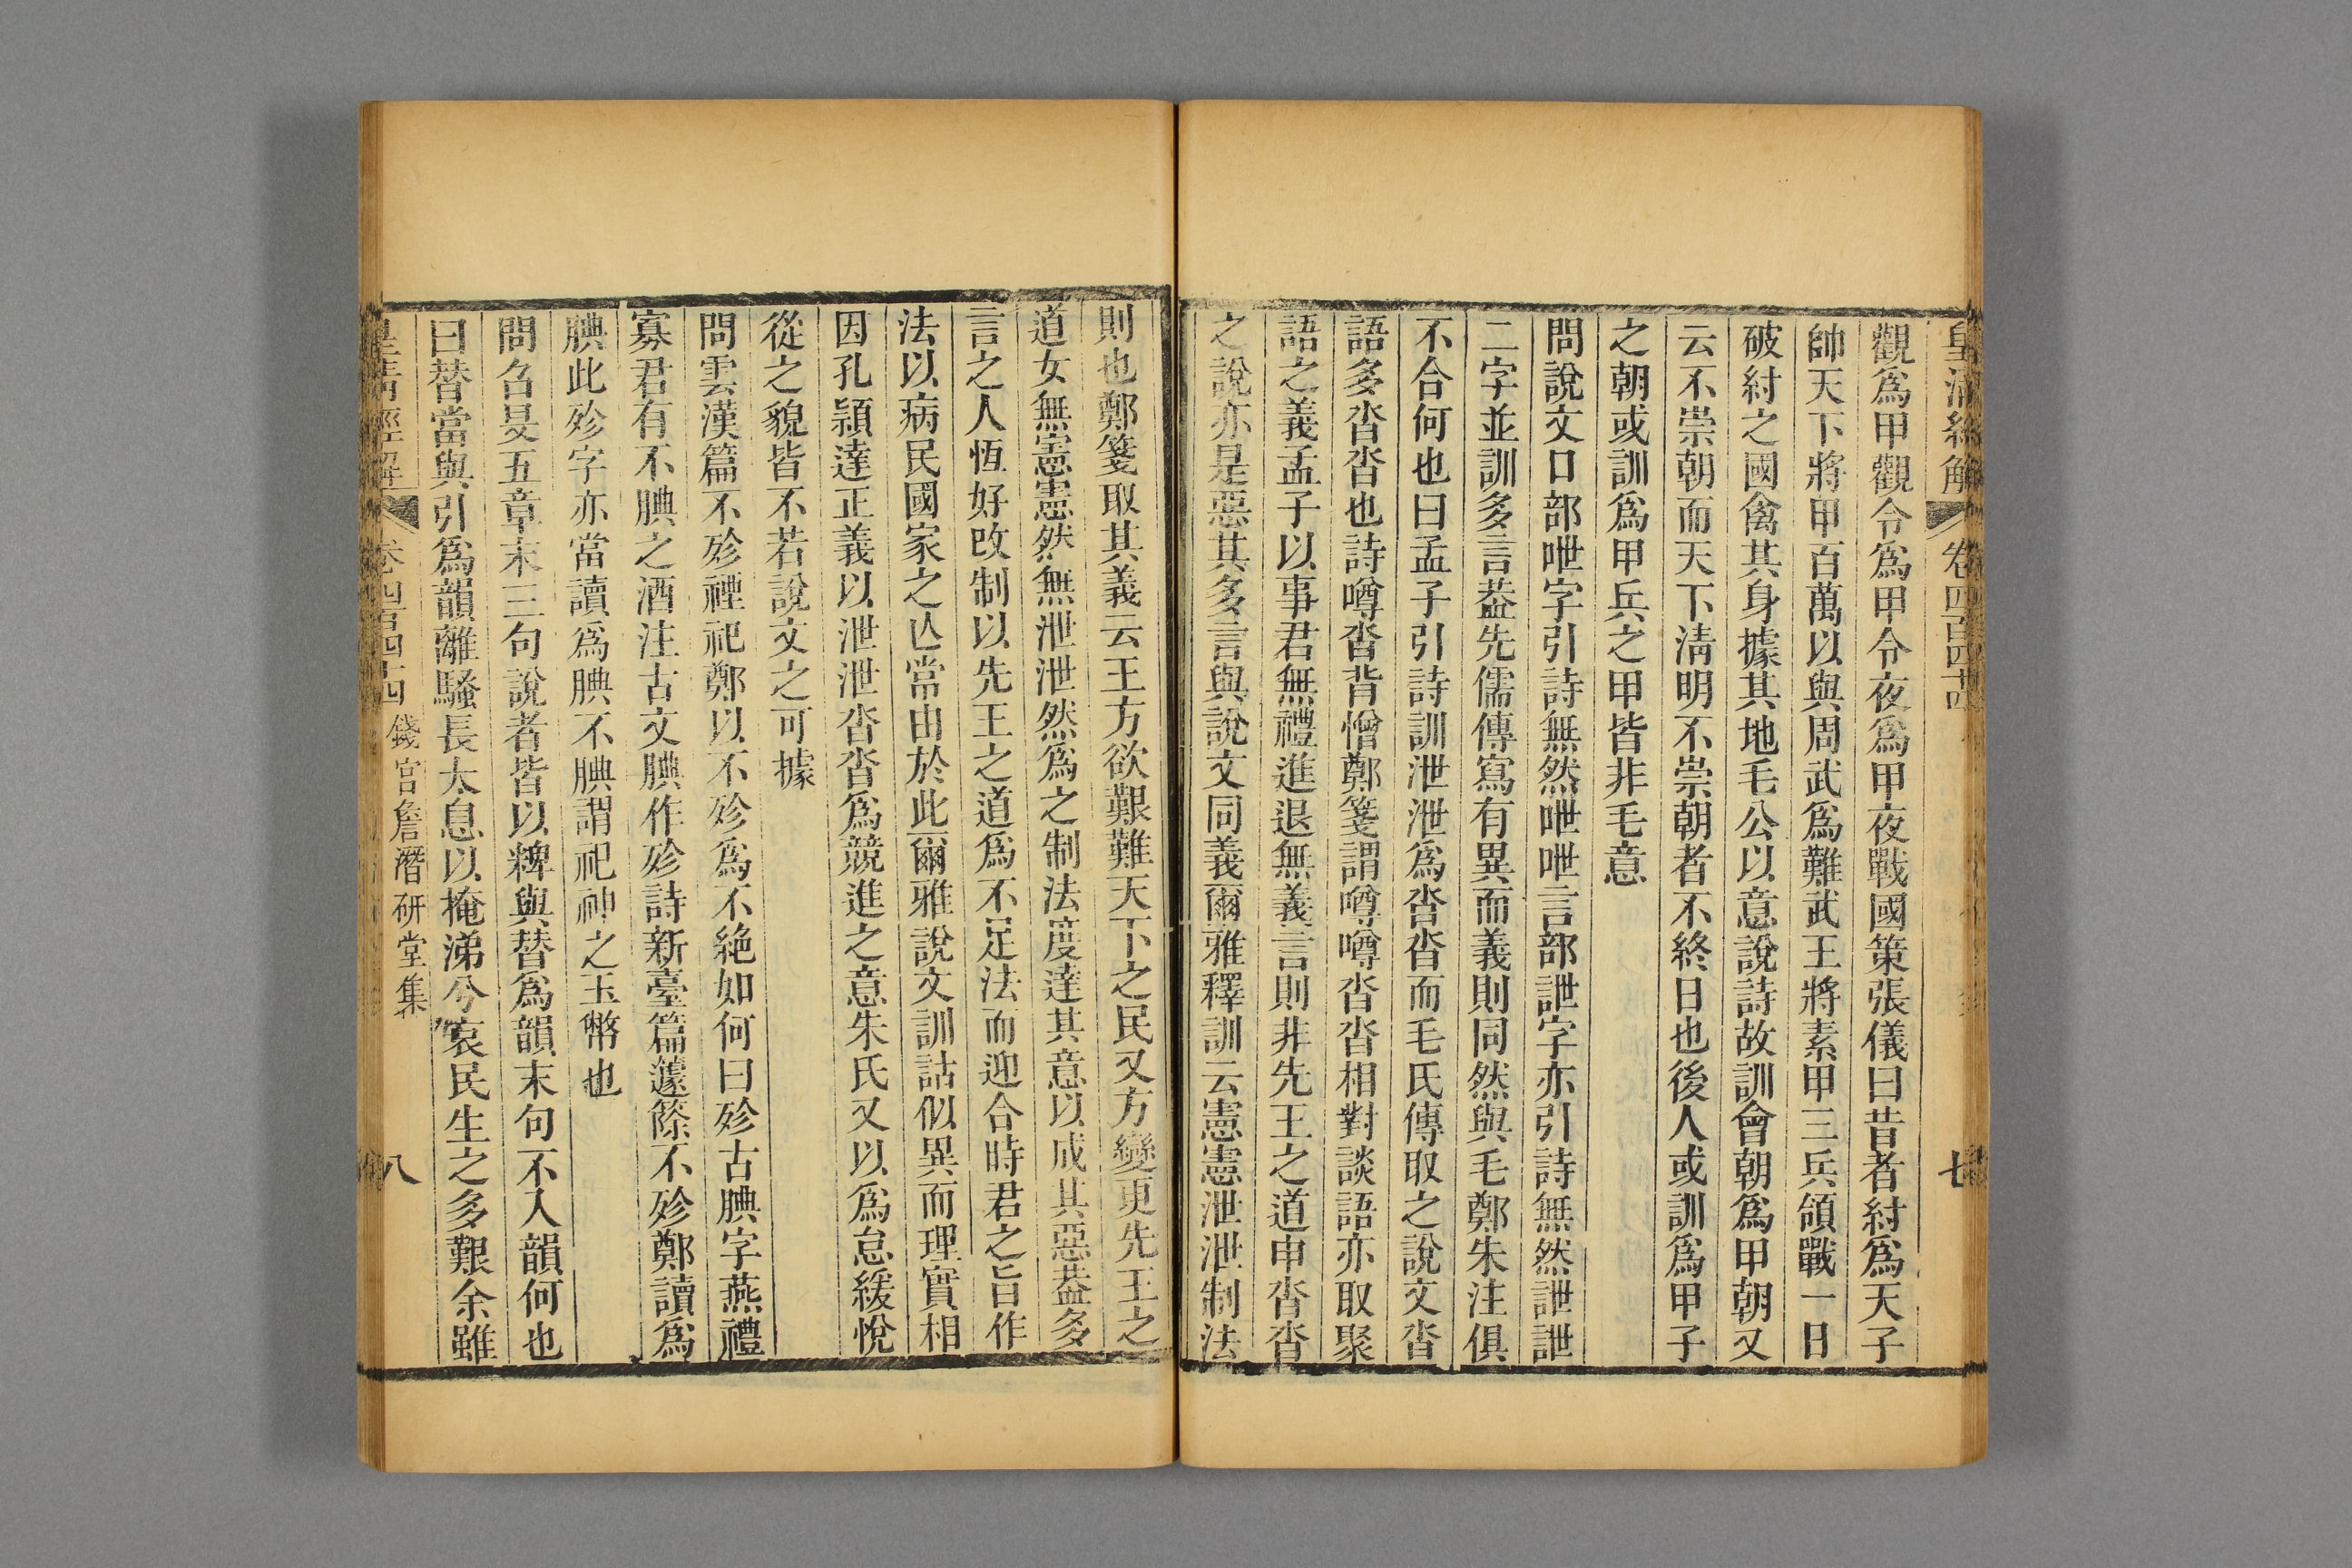 皇清經解 卷四百四十四 七
觀爲甲觀令爲甲令夜爲甲夜戰國策張儀曰昔者紂爲天子
帥天下將甲百萬以與周武爲難武王將素甲三兵領戰一日
破紂之國禽其身據其地毛公以意說詩故訓會朝爲甲朝又
云不崇朝而天下淸明不崇朝者不終日也後人或訓爲甲子
之朝或訓爲甲兵之甲皆非毛意
問說文口部呭字引詩無然呭呭言部詍字亦引詩無然詍詍
二字並訓多言葢先儒傳寫有異而義則同然與毛鄭朱注俱
不合何也曰孟子引詩訓泄泄爲沓沓而毛氏傳取之說文沓
語多沓沓也詩噂沓背憎鄭箋謂噂噂沓沓相對談語亦取聚
語之義孟子以事君無禮進退無義言則非先王之道申沓沓
之說亦是惡其多言與說文同義爾雅釋訓云憲憲泄泄制法
則也鄭箋取其義云王方欲艱難天下之民又方變更先王之
道女無憲憲然無泄泄然爲之制法度達其意以成其惡葢多
言之人恆好改制以先王之道爲不足法而迎合時君之旨作
法以病民國家之亾常由於此爾雅說文訓詁似異而理實相
因孔穎達正義以泄泄沓沓爲競進之意朱氏又以爲怠緩悅
從之貌皆不若說文之可據
問雲漢篇不殄禋祀鄭以不殄爲不絶如何曰殄古腆字燕禮
寡君有不腆之酒注古文腆作殄詩新臺篇籧篨不殄鄭讀爲
腆此殄字亦當讀爲腆不腆謂祀神之玉幣也
問召旻五章末三句說者皆以粺與替爲韻末句不入韻何也
曰替當與引爲韻離騷長太息以掩涕兮哀民生之多艱余雖
皇清經解 卷四百四十四 錢宫詹潛研堂集 八